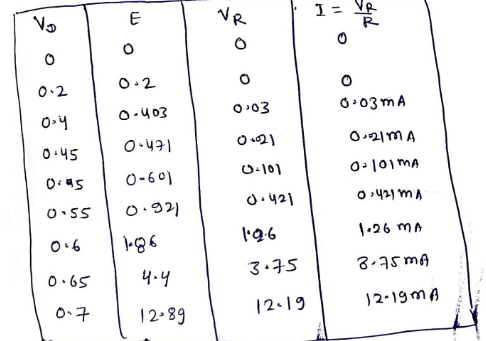 V_D E V_R I = V_R/R
0 0 0 0
0.2 0.2 0 0
0.4 0.403 0.03 0.03mA
0.45 0.471 0.021 0.21mA
0.45 0.601 0.101 0.101mA
0.55 0.921 0.421 0.421mA
0.6 1.86 1.26 1.26 mA
0.65 4.4 3.75 3.75mA
0.7 12.89 12.19 12.19mA